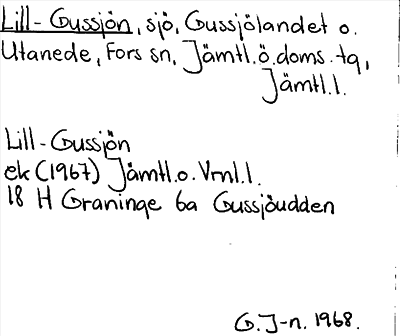 Lill-Gussjön, sjö, Gussjölandet o.
Utanede, Fors sn, Jämtl.ö.doms.tq,
Jämtl.l.
Lill-Gussjön
ek (1967) Jämtl.o.Vrnl.l.
18 H Graninge 6a Gussjöudden
G.J-n. 1968.